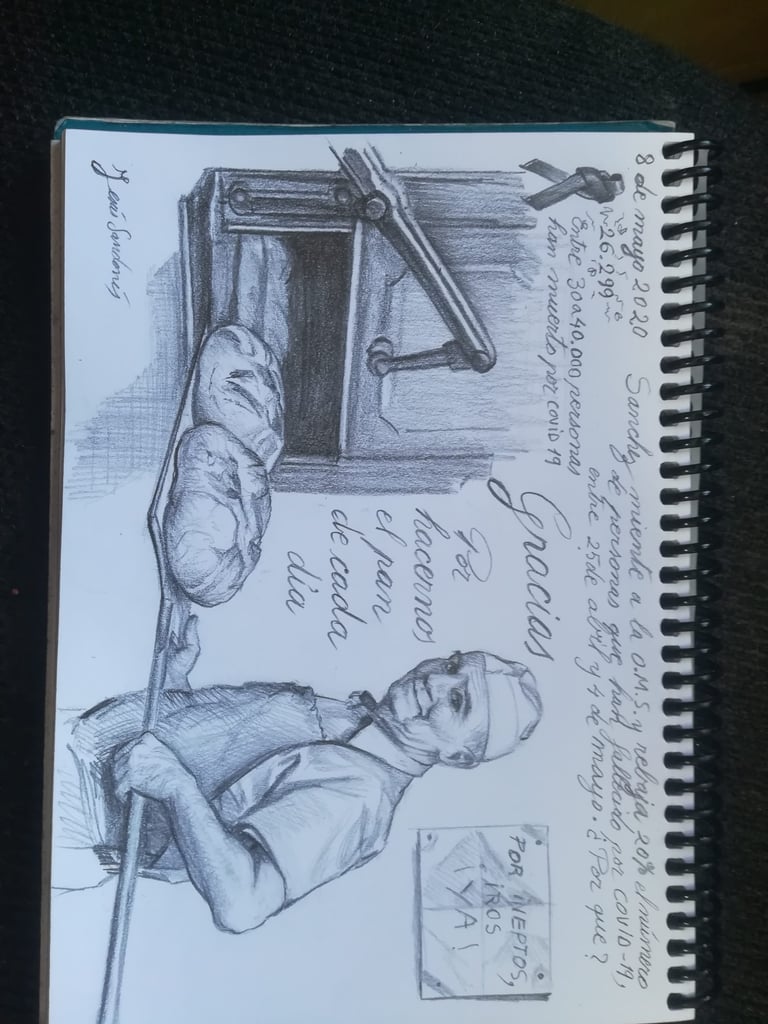 8 de mayo 2020 Sanchez miente a la O.M.S. y rebaja 20% el número
de personas que han fallecido por covid-19,
26.299
entre 25 de abril y 4 de mayo. ¿Por que?
Entre 30 a 40.000 personas
han muerto por covid 19
Gracias
Por
hacernos
el pan
de cada
día
POR INEPTOS,
IROS
¡YA!